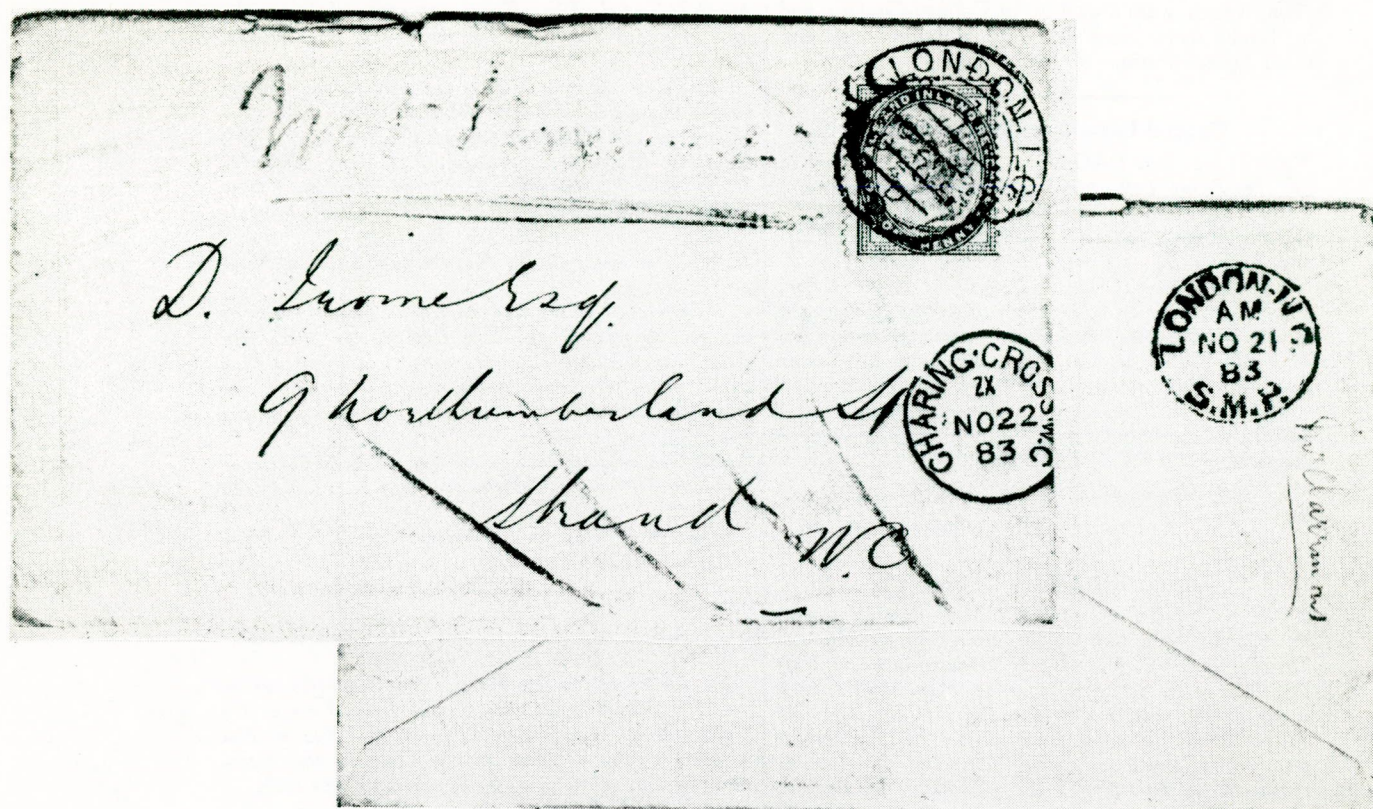 LONDON
D. Irvine Esq.
9 Northumberland St
Strand
W.C
CHARING·CROSS.W.C
ZX
NO22
83
LONDON
AM
NO 21
83
S.M.P.